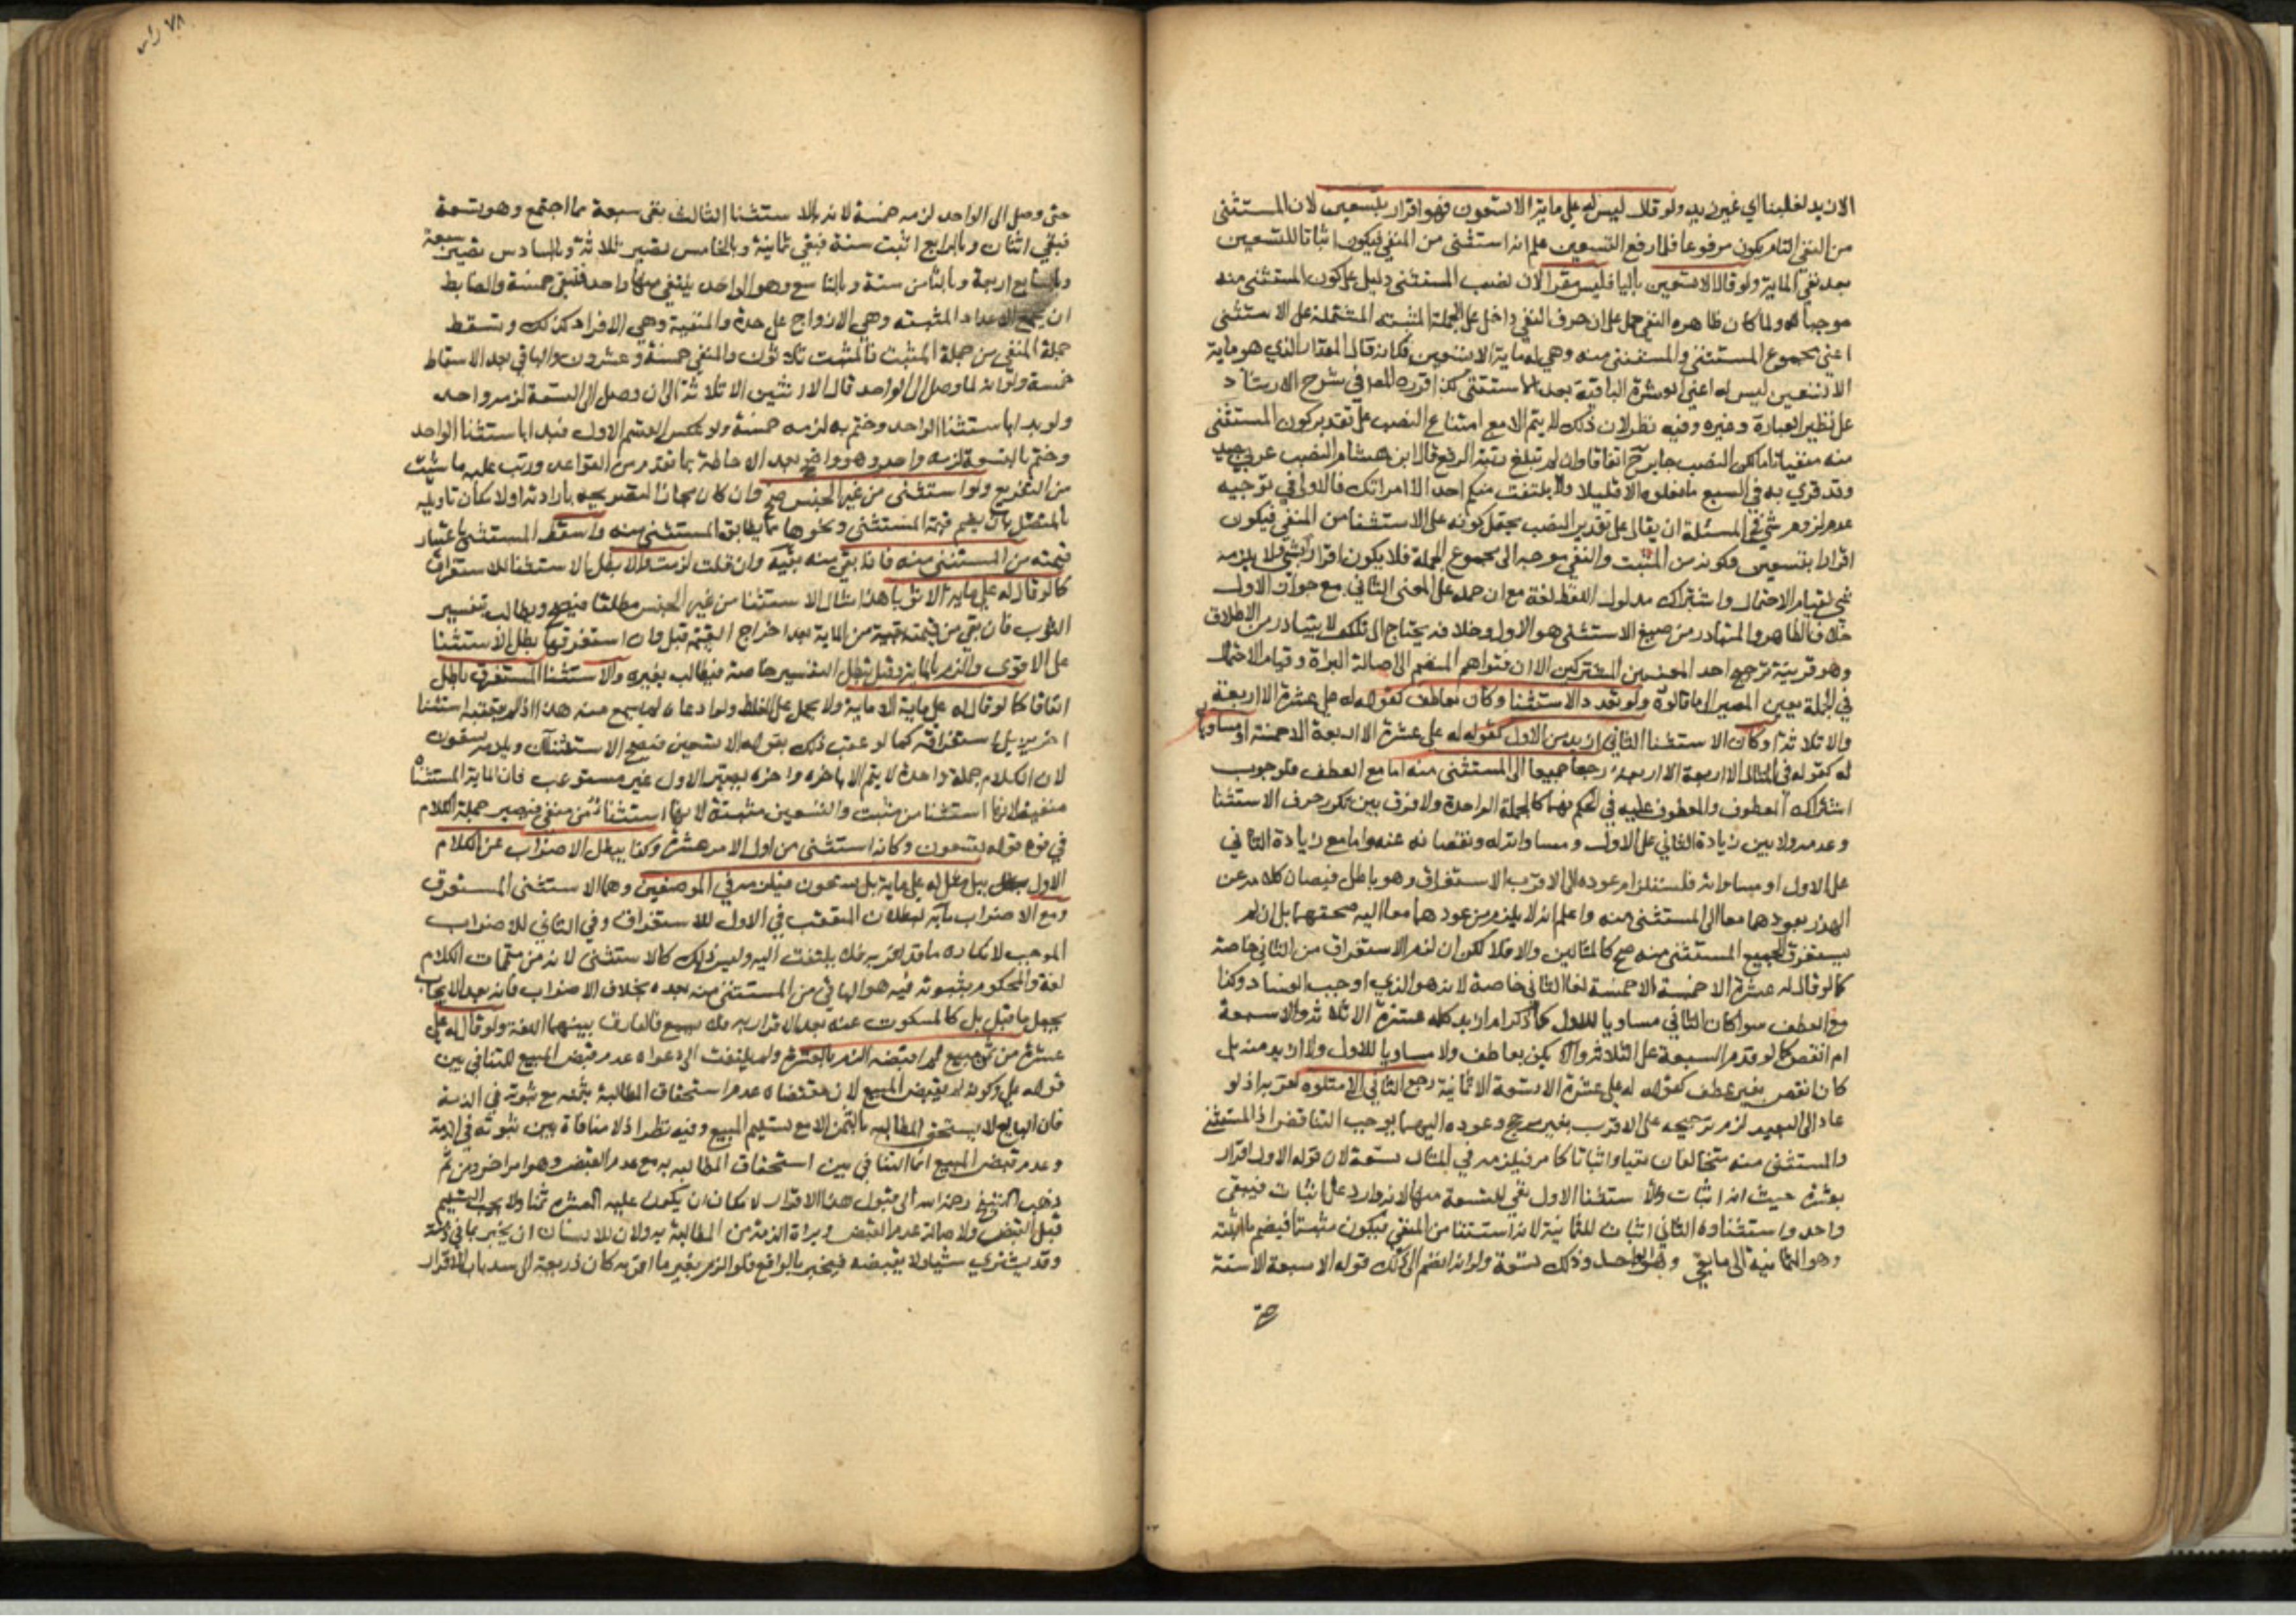 الان بيد لغلبنا اي غيرن بيد ولو قال ليس له علي مايـة الا تسعون فهو اقرار بتسعين لان المستثنى
من المنفي التام يكون مرفوعا فلما رفع التسعين علم انه استثنى من المنفي فيكون اثباتا للتسعين
بعد نفي الماية ولو قال الا تسعين بالياء فليس مقرا لان نصب المستثنى دليل على كون المستثنى منه
موجبا ولما كان ظاهره النفي حمل على ان حرف النفي داخل على الجملة المثبتة المشتملة على الاستثنى
اعني مجموع المستثنى والمستثنى منه وهي له ماية الا تسعين فكانه قال المقدار الذي هو ماية
الا تسعين ليس له اعني العشرة الباقية بعد الاستثنى كذا قرره المص في شرح الارشاد
على نظير العبارة وغيره وفيه نظر لان ذلك لا يتم الا مع امتناع النصب على تقدير كون المستثنى
منه منفيا تاما لكن النصب جايز ح اتفاقا وان لم تبلغ رتبة الرفع قال ابن هشام النصب عربي جيد
وقد قرئ به في السبع ما فعلوه الا قليلا ولا يلتفت منكم احد الا امراتك فالاولى في توجيه
عدم لزوم شي في المسئلة ان يقال على تقدير النصب يحتمل كونه على الاستثنا من المنفي فيكون
اقرارا بتسعين وكونه من المثبت والنفي موجه الى مجموع الجملة فلا يكون اقرارا بشي فلا يلزمه
شي لقيام الاحتمال واشتراك مدلول اللفظ لغة مع ان حمله على المعنى الثاني مع جواز الاول
خلاف الظاهر والمتبادر من صيغ الاستثنى هو الاول وخلافه يحتاج الى تكلف لا يتبادر من الاطلاق
وهو قرينة ترجيح احد المعنيين المشتركين الا ان فتواهم المنضم الى اصالة البراة وقيام الاحتمال
في الجملة يعين المصير الى ما قالوه ولو تعدد الاستثنا وكان بعاطف كقوله له علي عشرة الا اربعة
والا ثلاثة او كان الاستثنا الثاني ازيد من الاول كقوله له علي عشرة الا اربعة الا خمسة او مساويا
له كقوله في المثال الا اربعة الا اربعة رجعا جميعا الى المستثنى منه اما مع العطف فلوجوب
اشتراك المعطوف والمعطوف عليه في الحكم فهما كالجملة الواحدة ولا فرق بين تكرر حرف الاستثنا
وعدمه ولا بين زيادة الثاني على الاول ومساواته له ونقصانه عنه واما مع زيادة الثاني
على الاول او مساواته فلاستلزام عوده الى الاقرب الاستغراق وهو باطل فيصان كلامه عن
الهذر بعودهما معا الى المستثنى منه واعلم انه لا يلزم من عودهما معا اليه صحتهما بل ان لم
يستغرق الجميع المستثنى منه صح كالمثالين والا فلا لكن ان لزم الاستغراق من الثاني خاصة
كما لو قال له عشرة الا خمسة الا خمسة لغا الثاني خاصة لانه هو الذي اوجب الفساد وكذا
مع العطف سوا كان الثاني مساويا للاول كما ذكر ام ازيد كله عشرة الا ثلاثة والا سبعة
ام انقص كما لو قدم السبعة على الثلاثة والا يكن بعاطف ولا مساويا للاول ولا ازيد منه بل
كان انقص بغير عطف كقوله له علي عشرة الا تسعة الا ثمانية رجع الثاني الى متلوه لقربه اذ لو
عاد الى البعيد لزم ترجيحه على الاقرب بغير مرجح وعوده اليهما يوجب التناقض اذ المستثنى
والمستثنى منه متخالفان نفيا واثباتا كما مر فيلزمه في المثال تسعة لان قوله الاول اقرار
بعشرة حيث انه اثبات والاستثنا الاول نفي للتسعة منها لانه وارد على اثبات فيبقى
واحد واستثناوه الثاني اثبات للثمانية لانه استثنا من المنفي فيكون مثبتا فيضم ما اثبته
وهو الثمانية الى ما بقي وهو الواحد وذلك تسعة ولو انه انضم الى ذلك قوله الا سبعة الا ستة
حتى
٧٨
حتى وصل الى الواحد لزمه خمسة لانه بالاستثنا الثالث بقي سبعة مما اجتمع وهو تسعة
فبقي اثنان وبالرابع اثبت ستة فبقي ثمانية وبالخامس تصير ثلاثة وبالسادس تصير سبعة
وبالسابع اربعة وبالثامن ستة وبالتاسع وهو الواحد ينتفي منها واحد فتبقى خمسة والضابط
ان يجمع الاعداد المثبته وهي الازواج على حدة والمنفية وهي الافراد كذلك وتسقط
جملة المنفي من جملة المثبت فالمثبت ثلاثون والمنفي خمسة وعشرون والباقي بعد الاسقاط
خمسة ولو انه لما وصل الى الواحد قال الا اثنين الا ثلاثة الى ان وصل الى التسعة لزمه واحد
ولو بدا باستثنا الواحد وختم به لزمه خمسة ولو عكس القسم الاول فبدا باستثنا الواحد
وختم بالتسعة لزمه واحد وهو واضح بعد الاحاطة بما تقدم من القواعد ورتب عليه ما شئت
من التفريع ولو استثنى من غير الجنس صح وان كان مجازا لتصريحه بارادته او لامكان تاويله
بالمتصل بان يضم قيمة المستثنى ونحوها مما يطابق المستثنى منه واسقط المستثنى باعتبار
قيمته من المستثنى منه فاذا بقي منه بقية وان قلت لزمت والا بطل الاستثنا للاستغراق
كما لو قال له علي ماية الا ثوبا هذا مثال الاستثنا من غير الجنس مطلقا فيصح ويطالب بتفسير
الثوب فان بقي من قيمته بقية من الماية بعد اخراج القيمة قبل وان استغرقها بطل الاستثنا
على الاقوى والزم بالماية وقيل بطل التفسير خاصة فيطالب بغيره والاستثنا المستغرق باطل
اتفاقا كما لو قال له علي ماية الا ماية ولا يحمل على الغلط ولو ادعاه لم يسمع منه هذا اذا لم يتعقبه استثنا
اخر يزيل استغراقه كما لو عقب ذلك بقوله الا تسعين فيصح الاستثنآن ويلزمه تسعون
لان الكلام جملة واحدة لا يتم الا باخره واخره يصير الاول غير مستوعب فان الماية المستثناه
منفية لانها استثنا من مثبت والتسعين مثبتة لانها استثنا من منفي فيصير جملة الكلام
في قوة قوله تسعون وكانه استثنى من اول الامر عشرة وكذا يبطل الاضراب عن الكلام
الاول ببل مثل له علي ماية بل تسعون فيلزمه في الموضعين وهما الاستثنى المستغرق
ومع الاضراب ماية لبطلان المتعقب في الاول للاستغراق وفي الثاني للاضراب
الموجب لانكار ما قد اقر به فلا يلتفت اليه وليس ذلك كالاستثنى لانه من متممات الكلام
لغة والمحكوم بثبوته فيه هو الباقي من المستثنى منه بعده بخلاف الاضراب فانه بعد الايجاب
يجعل ما قبل بل كالمسكوت عنه بعد الاقرار به فلا يسمع فالفارق بينهما اللغة ولو قال له علي
عشرة من ثمن مبيع لم اقبضه الزم بالعشرة ولم يلتفت الى دعواه عدم قبض المبيع للتنافي بين
قوله علي وكونه لم يقبض المبيع لان مقتضاه عدم استحقاق المطالبة بثمنه مع ثبوته في الذمة
فان البايع لا يستحق المطالبة بالثمن الا مع تسليم المبيع وفيه نظر اذ لا منافاة بين ثبوته في الذمة
وعدم قبض المبيع انما التنافي بين استحقاق المطالبه به مع عدم القبض وهو امر اخر ومن ثم
ذهب الشيخ رحمه الله الى قبول هذا الاقرار لامكان ان يكون عليه العشرة ثمنا ولا يجب التسليم
قبل القبض ولاصالة عدم القبض وبراة الذمة من المطالبة به ولان للانسان ان يخبر بما في ذمته
وقد يشتري شيا ولا يقبضه فيخبر بالواقع فلو الزم بغير ما اقر به كان ذريعة الى سد باب الاقرار